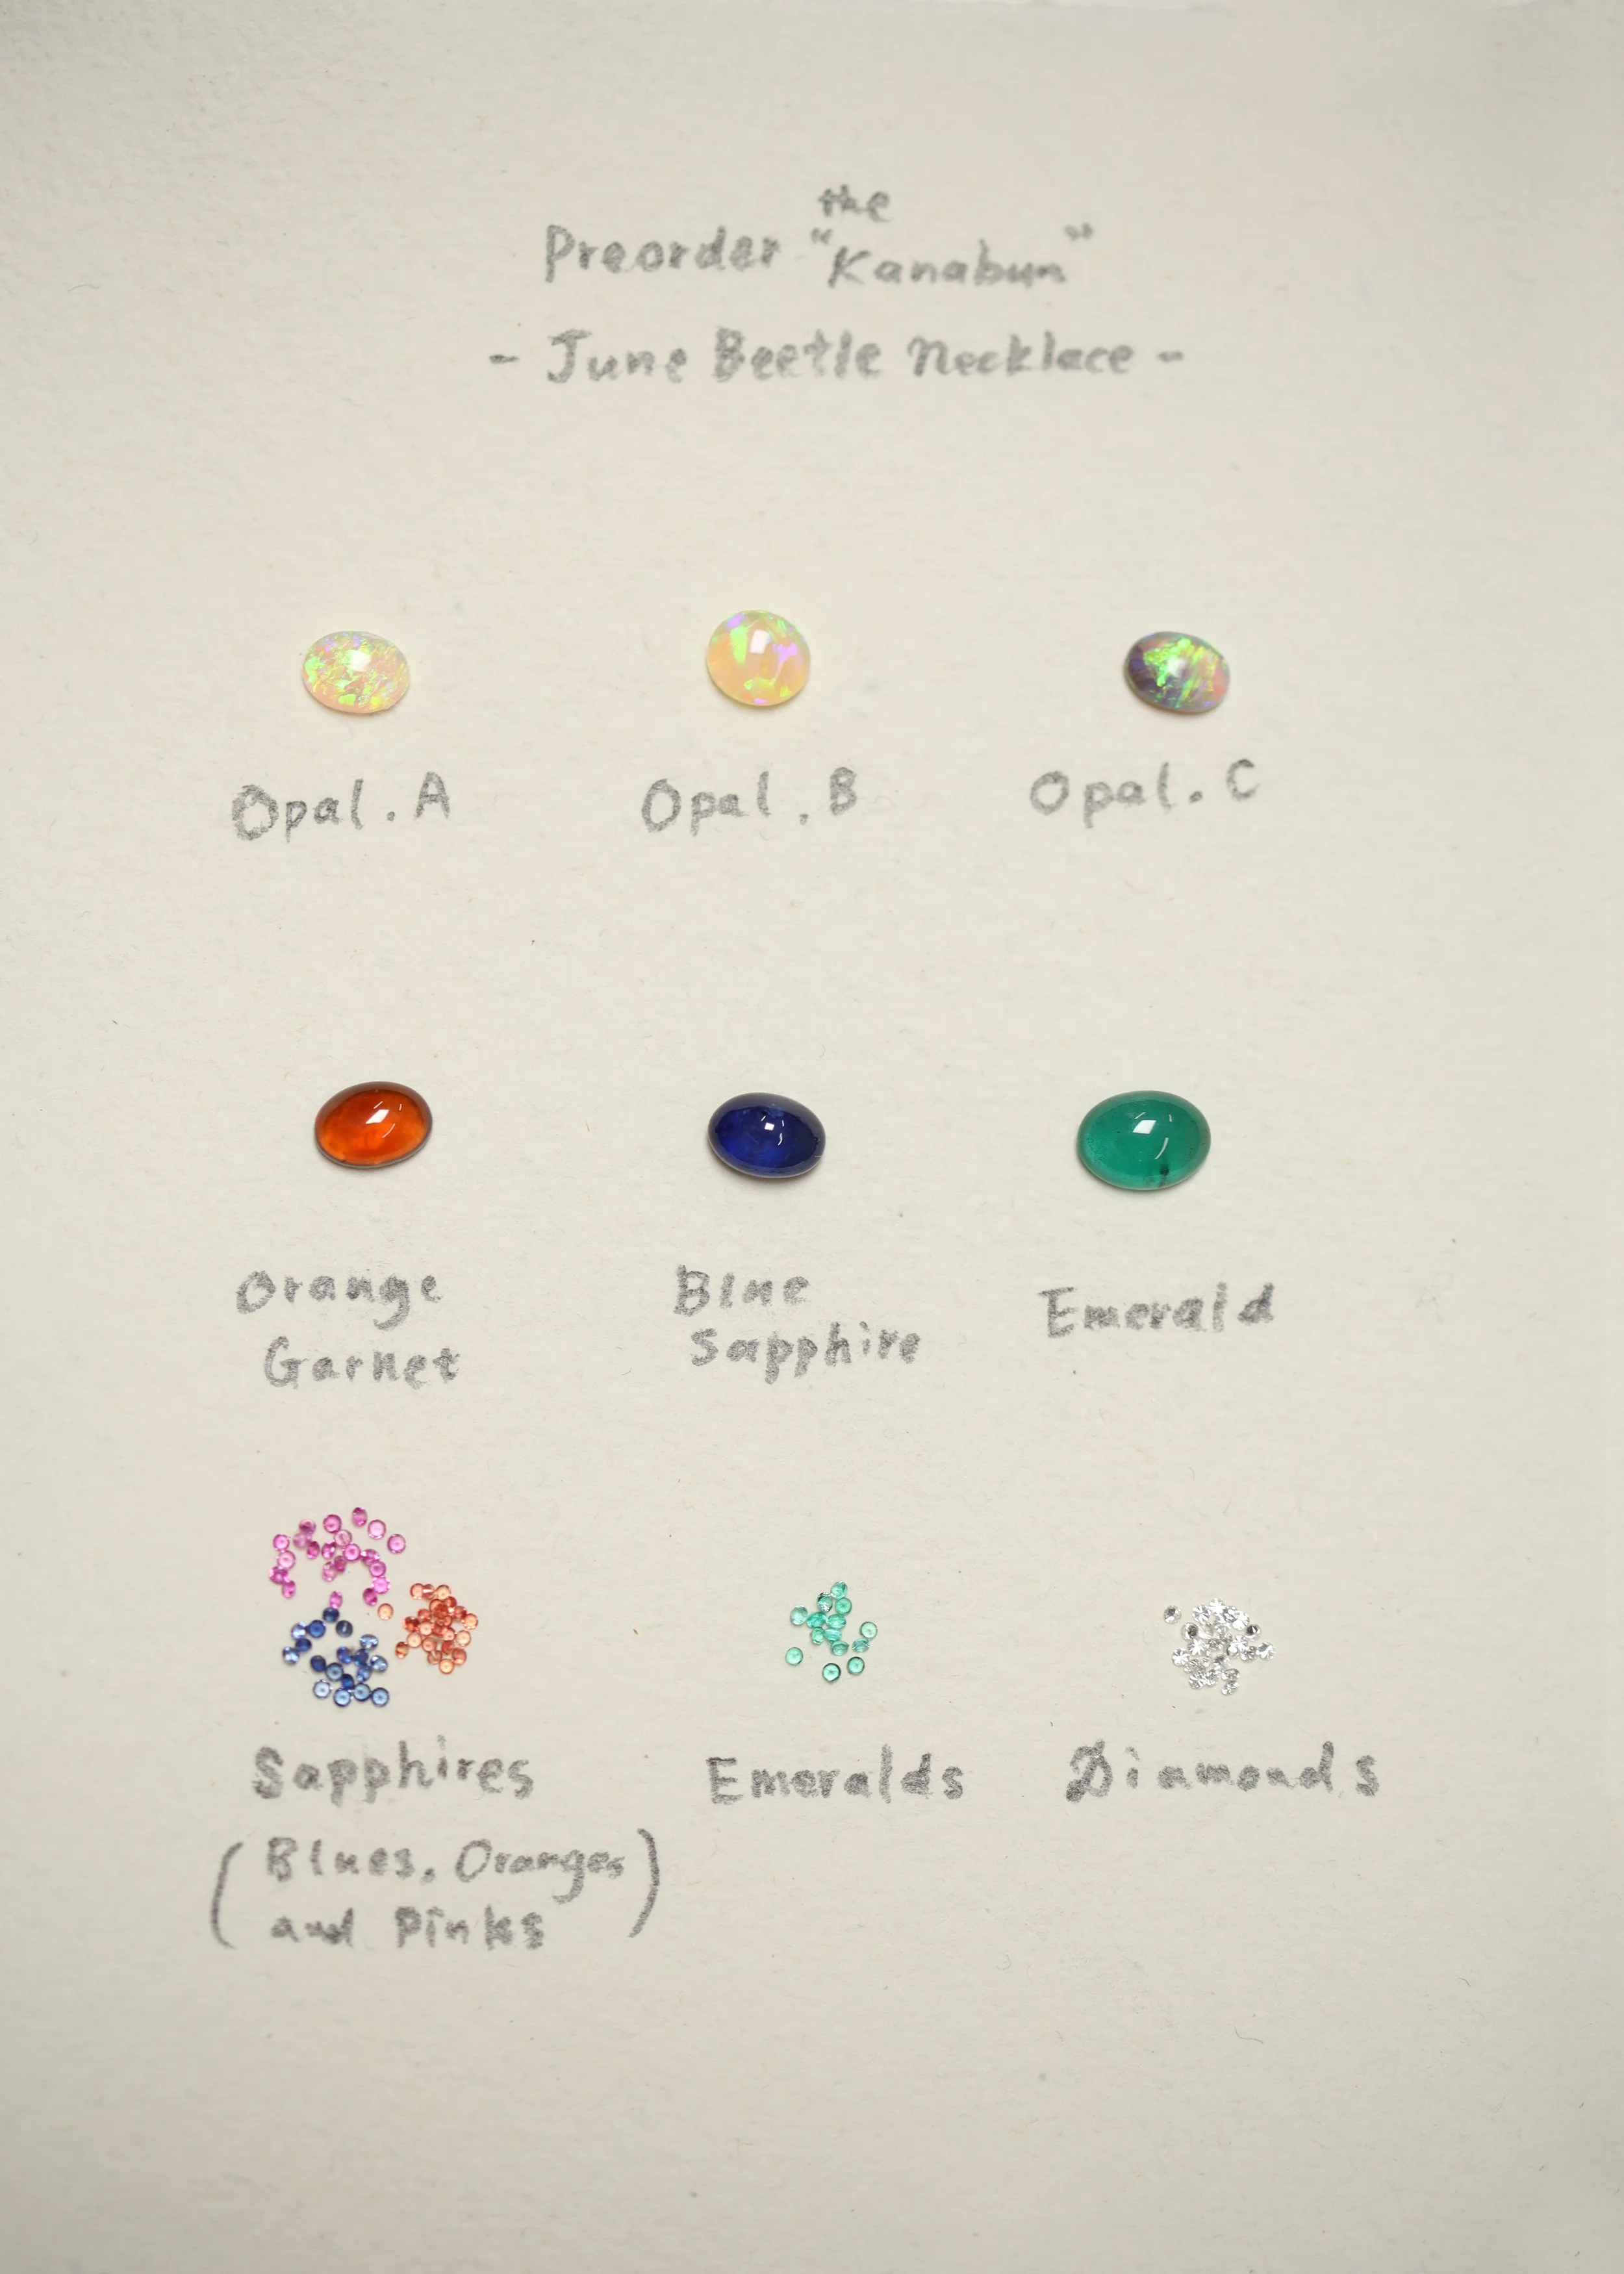 the
Preorder "Kanabun"
- June Beetle Necklace -
Opal.A
Opal.B
Opal.C
Orange
Garnet
Blue
Sapphire
Emerald
Sapphires
(Blues. Oranges
and Pinks)
Emeralds
Diamonds